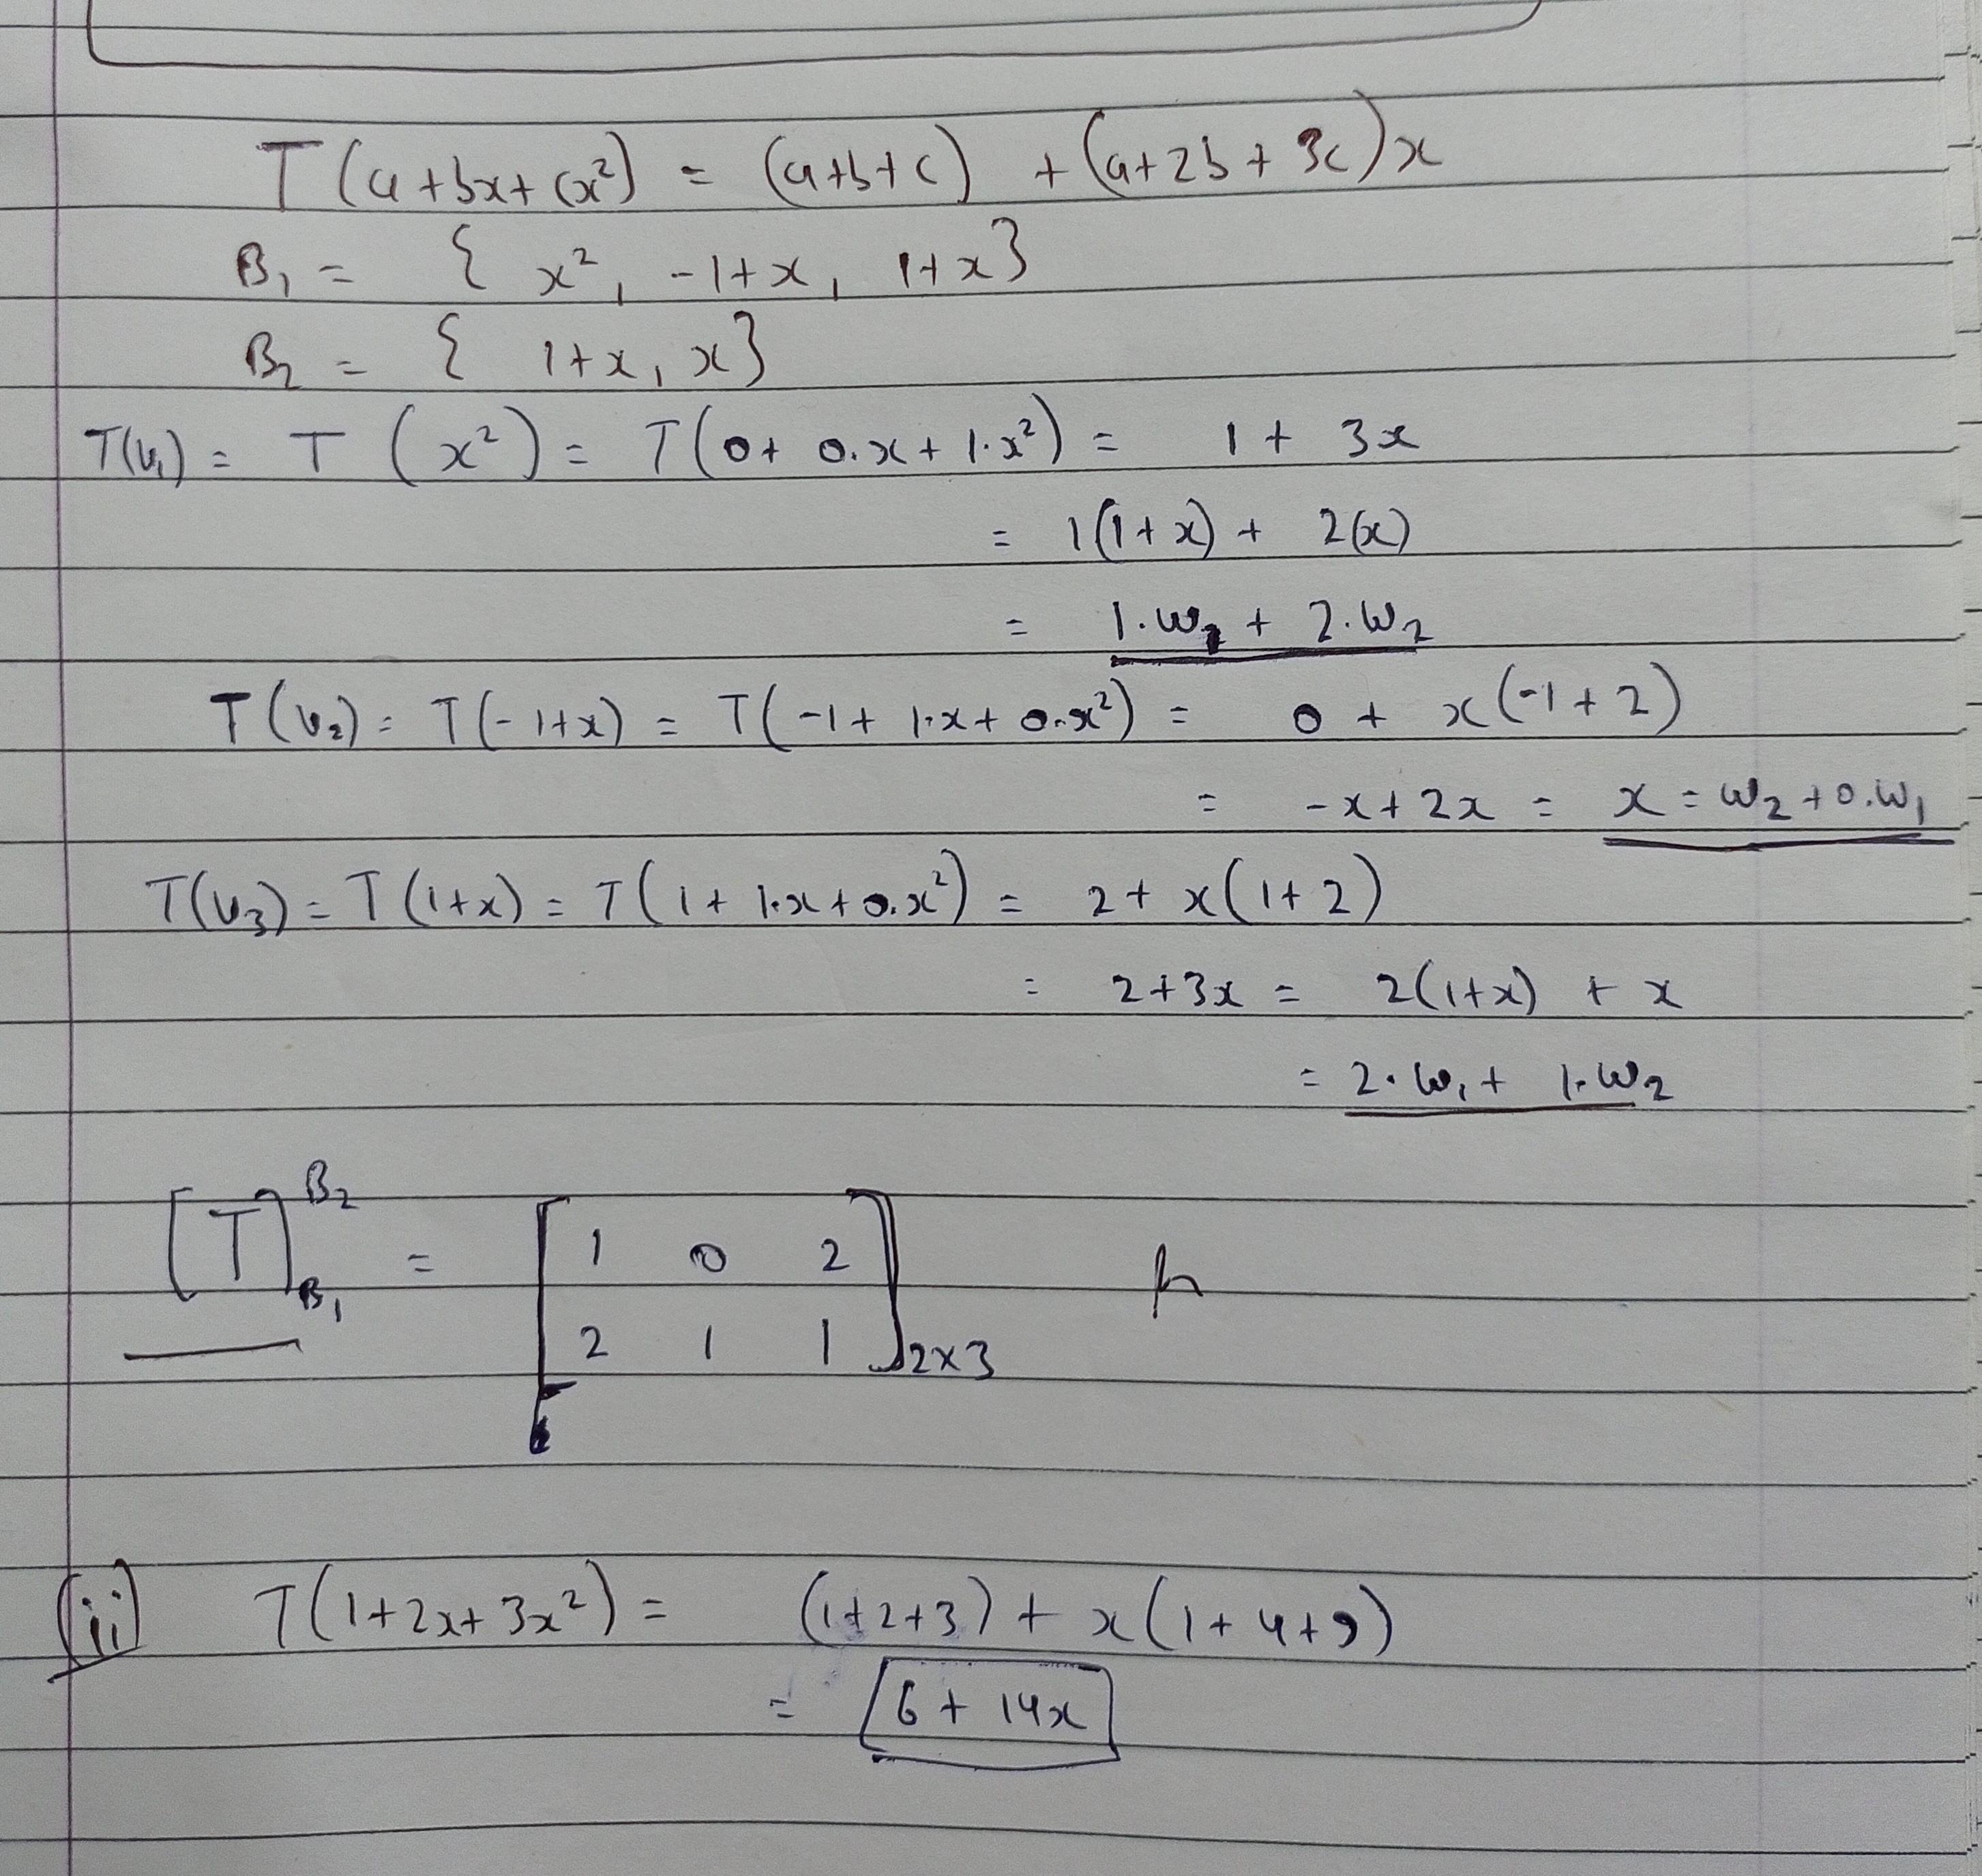 T(a+bx+cx²) = (a+b+c) + (a+2b+3c)x
B₁ = { x², -1+x, 1+x}
B₂ = { 1+x, x}
T(v₁) = T (x²) = T(0+ 0.x+ 1.x²) = 1 + 3x
= 1(1+x) + 2(x)
= 1.w₁ + 2.w₂
T(v₂) = T(-1+x) = T(-1+ 1.x+ 0.x²) = 0 + x(-1+2)
= -x+2x = x = w₂+0.w₁
T(v₃) = T(1+x) = T(1+ 1.x+0.x²) = 2+ x(1+2)
= 2+3x = 2(1+x) + x
= 2.w₁+ 1.w₂
[T]
B₂
B₁
= [1 0 2
2 1 1] 2×3
(ii) T(1+2x+3x²) = (1+2+3) + x(1+4+9)
= 6 + 14x